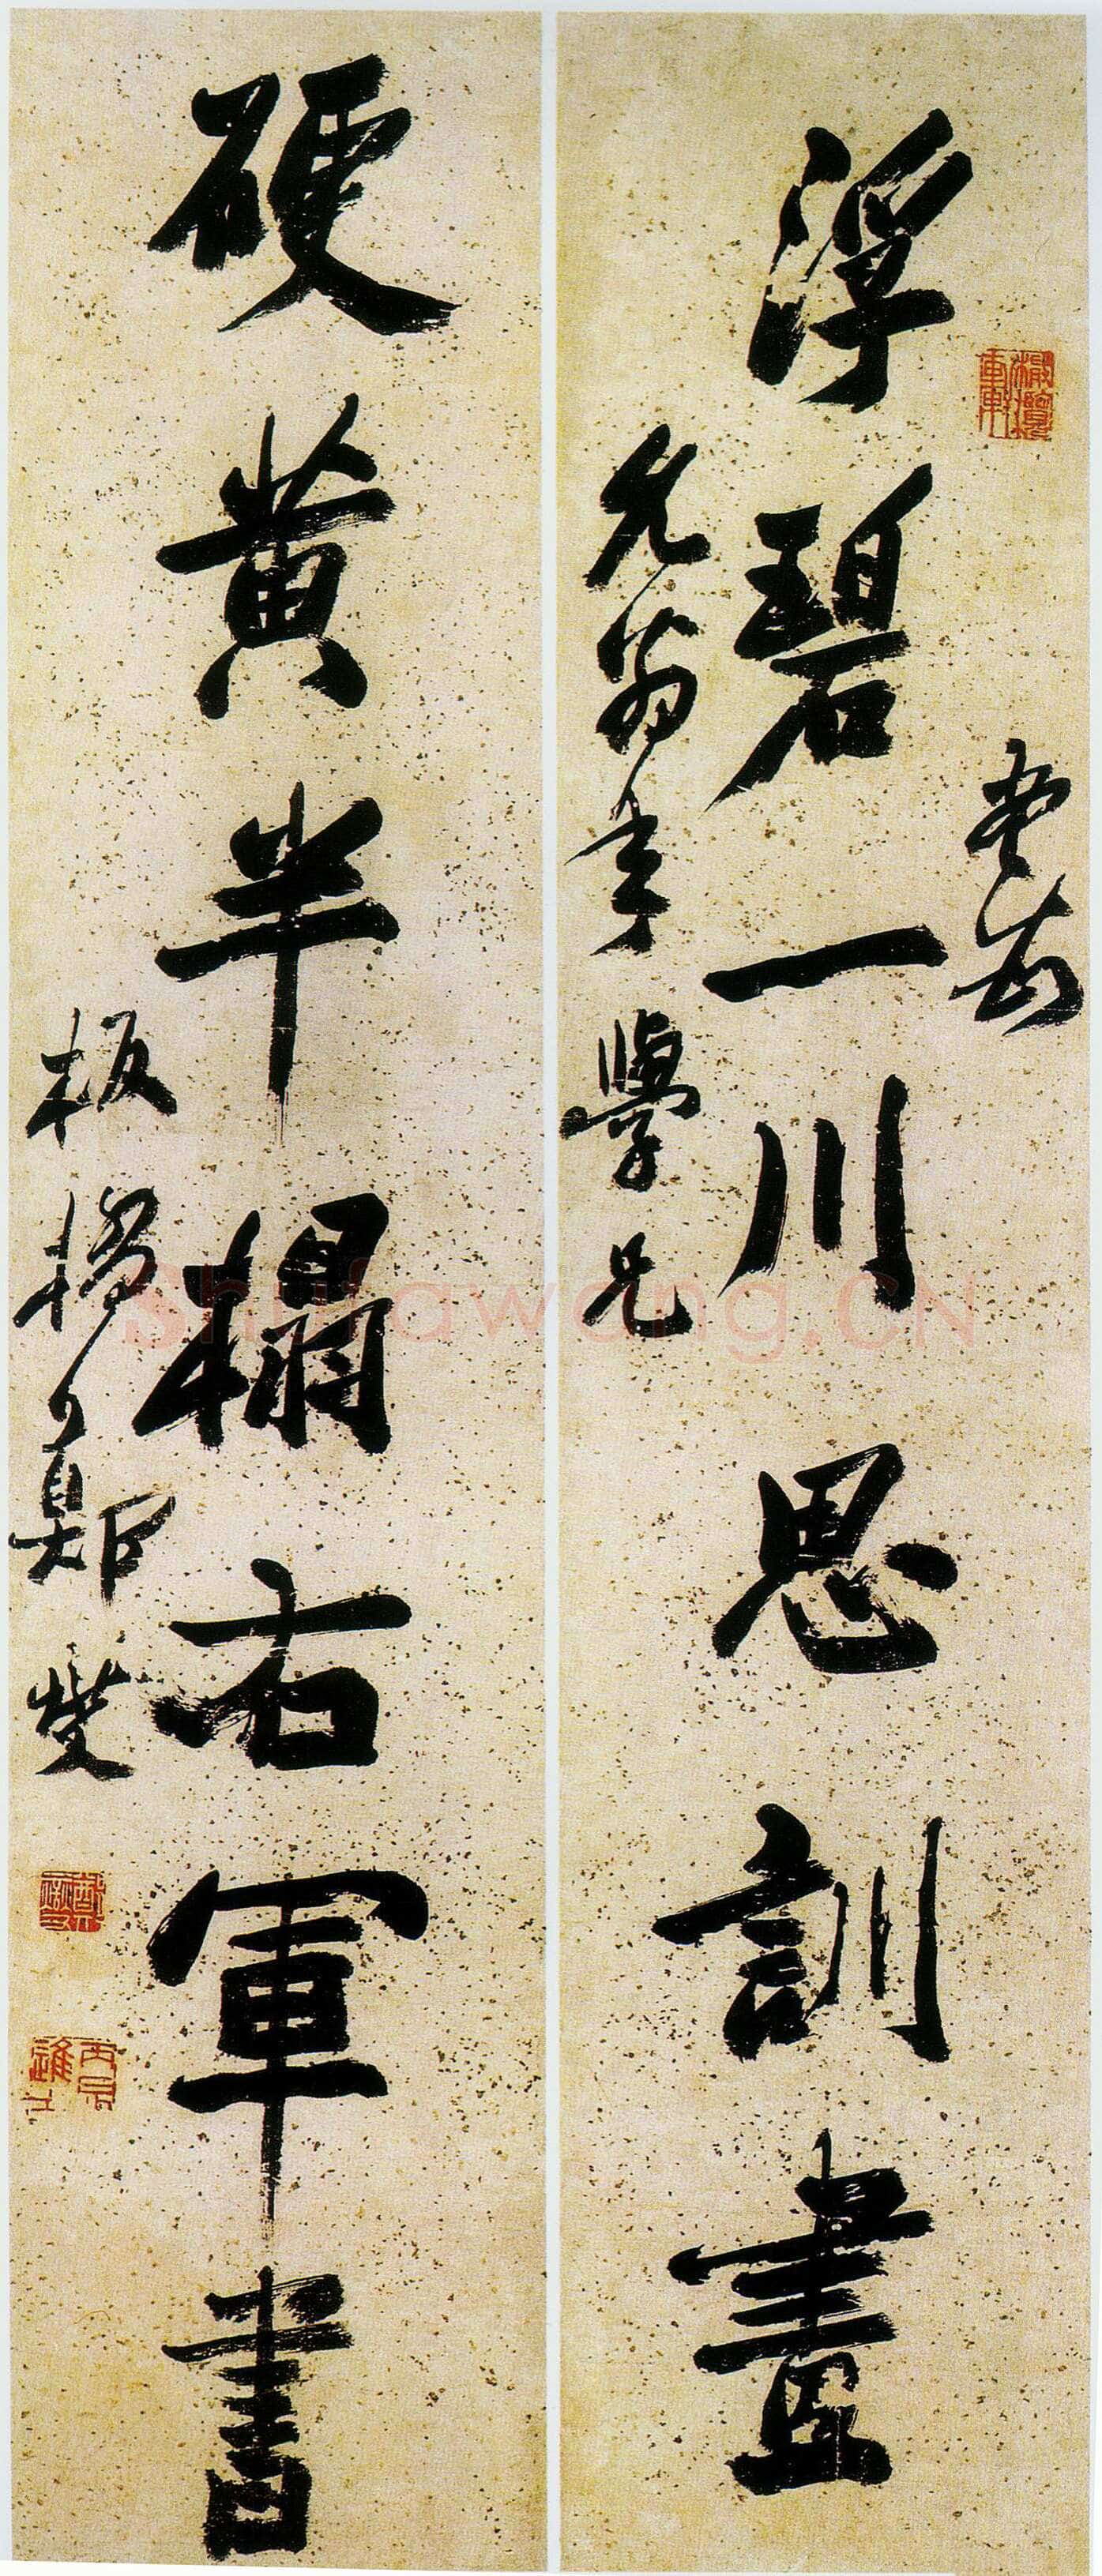 浮碧一川思訓畫
允翁年學兄
硬黃半榻右軍書
板橋弟鄭燮
Shufawang.CN